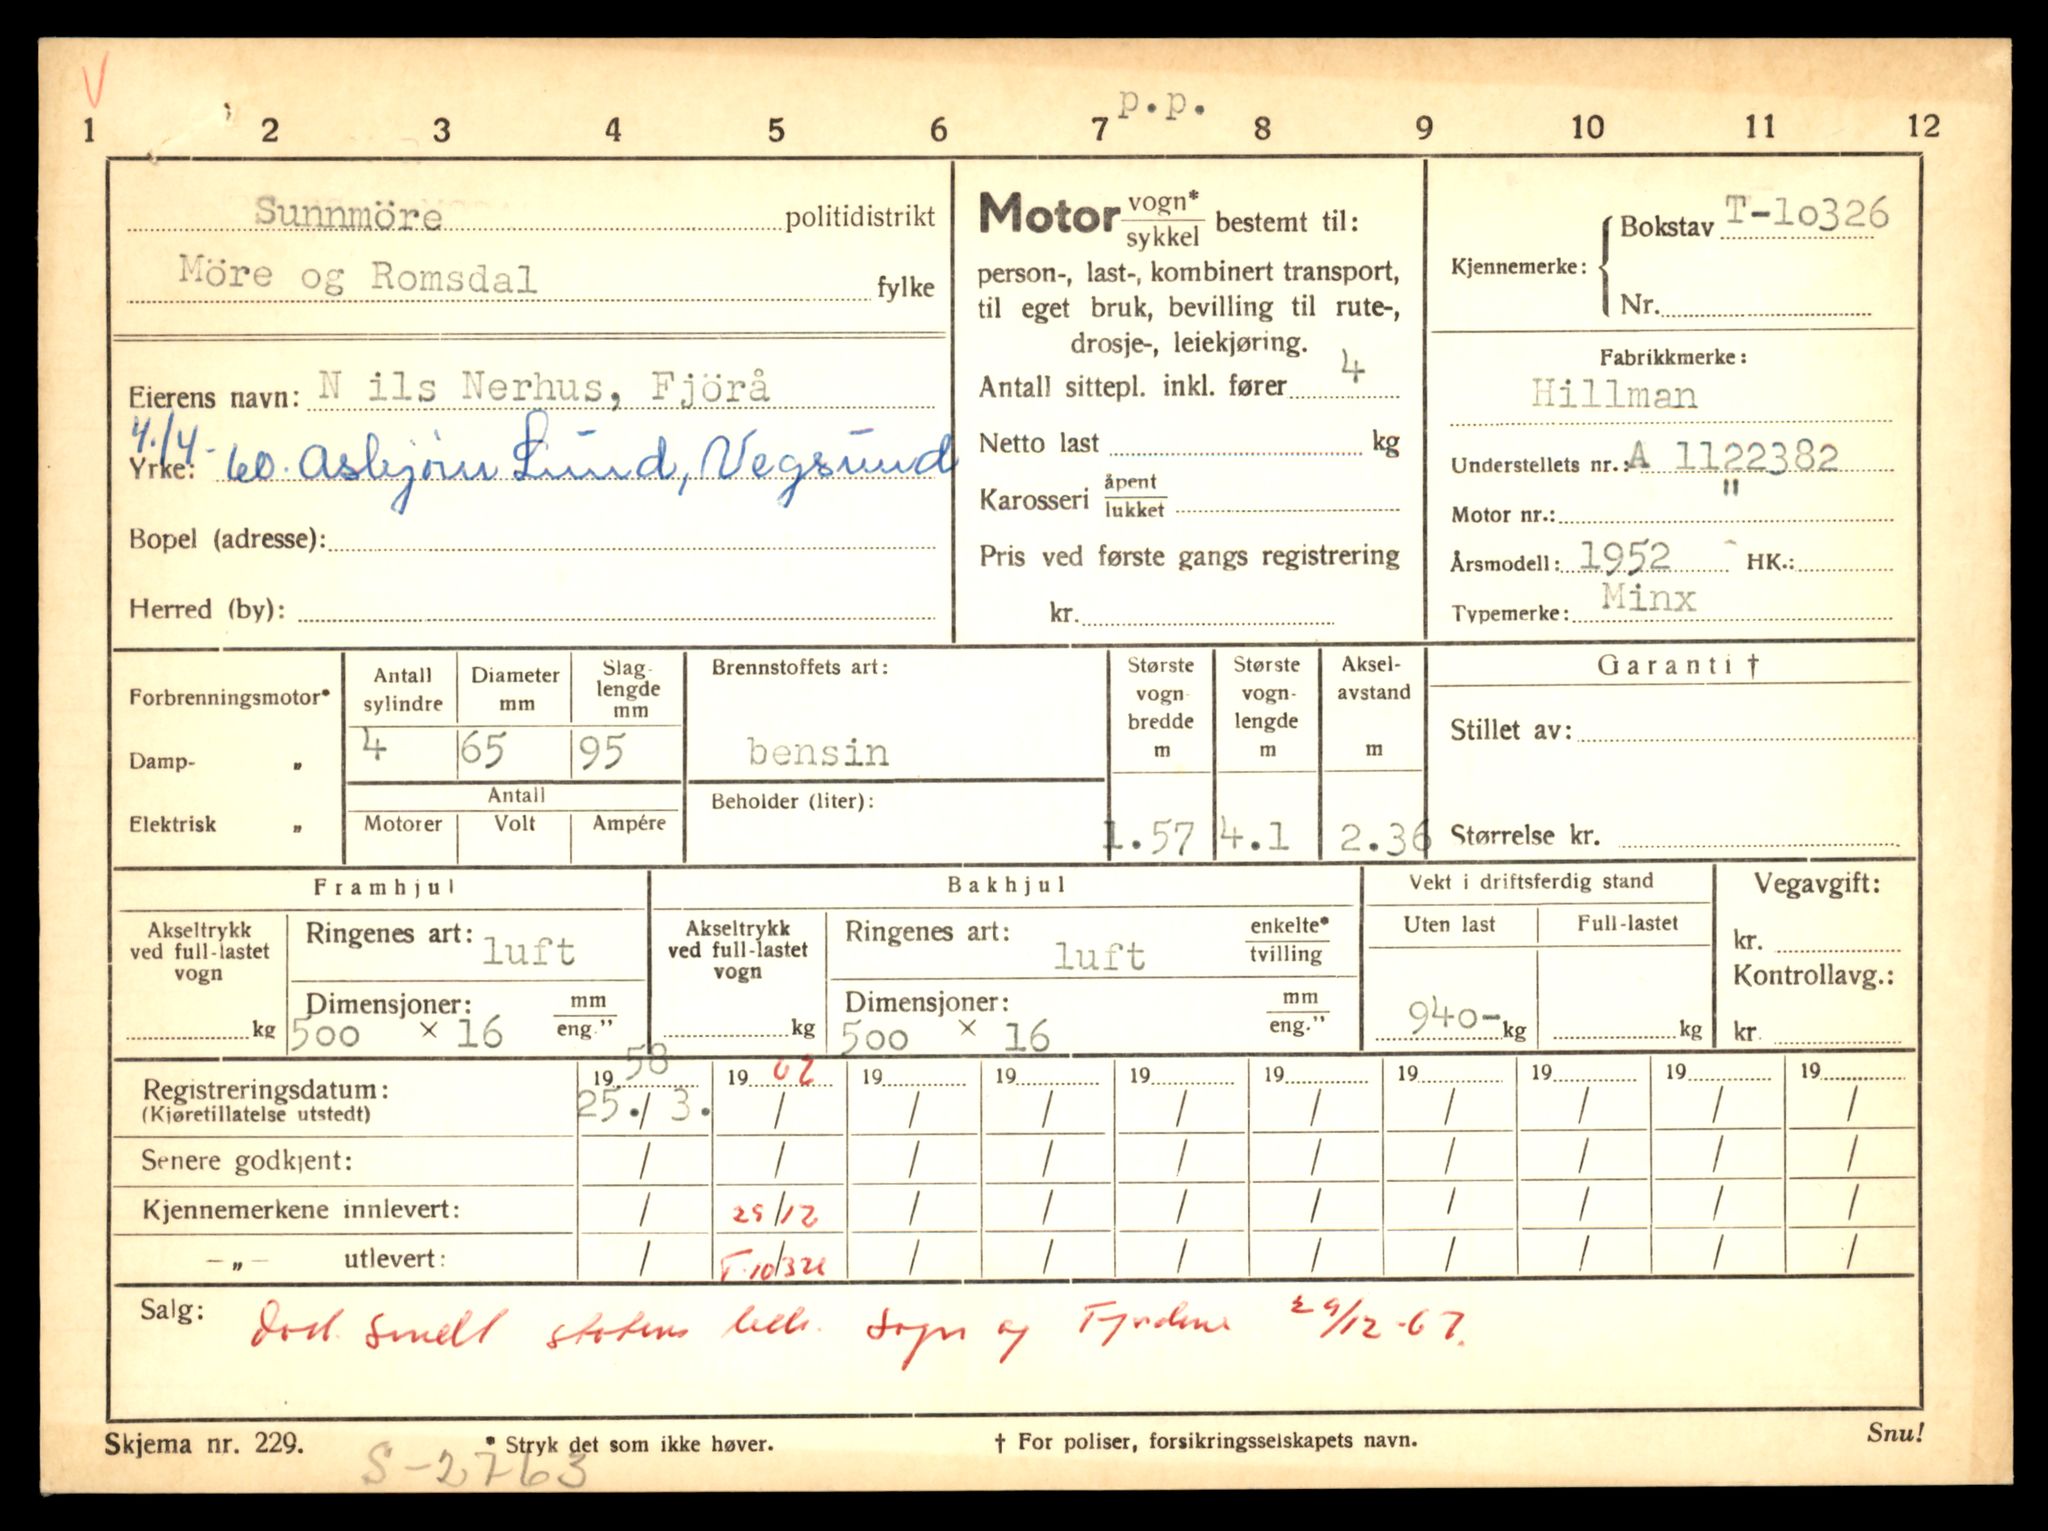 V
p.p.
1 2 3 4 5 6 7 8 9 10 11 12
Sunnmöre politidistrikt
Möre og Romsdal fylke
Eierens navn: N ils Nerhus, Fjörå
4./4-60. Asbjørn Lund, Vegsund
Yrke:
Bopel (adresse):
Herred (by):
Motor vogn* / sykkel bestemt til:
person-, last-, kombinert transport,
til eget bruk, bevilling til rute-,
drosje-, leiekjøring.
Antall sittepl. inkl. fører 4
Netto last kg
Karosseri åpent / lukket
Pris ved første gangs registrering
kr.
Kjennemerke: Bokstav T-10326
Nr.
Fabrikkmerke:
Hillman
Understellets nr.: A 1122382
Motor nr.: "
Årsmodell: 1952 HK.:
Typemerke: Minx
Forbrenningsmotor*
Damp- „
Elektrisk „
Antall sylindre Diameter mm Slaglengde mm
4 65 95
Antall
Motorer Volt Ampére
Brennstoffets art:
bensin
Beholder (liter):
Største vogn bredde m 1.57
Største vogn-lengde m 4.1
Aksel-avstand m 2.36
Garanti †
Stillet av:
Størrelse kr.
Framhjul
Akseltrykk ved full-lastet vogn kg
Ringenes art: luft
Dimensjoner: mm / eng."
500 × 16
Bakhjul
Akseltrykk ved full-lastet vogn kg
Ringenes art: luft enkelte* / tvilling
Dimensjoner: mm / eng."
500 × 16
Vekt i driftsferdig stand
Uten last Full-lastet
940- kg kg
Vegavgift:
kr.
Kontrollavg.:
kr.
Registreringsdatum: 19 58 19 62 19 19 19 19 19 19 19 19
(Kjøretillatelse utstedt) 25./3. / / / / / / / / /
Senere godkjent: / / / / / / / / / /
Kjennemerkene innlevert: / 29/12 / / / / / / / /
—„— utlevert: / T-10326 / / / / / / / /
Salg: statens Sogn og Fjordane 29/12-62.
Skjema nr. 229. * Stryk det som ikke høver. † For poliser, forsikringsselskapets navn. Snu!
S-2763